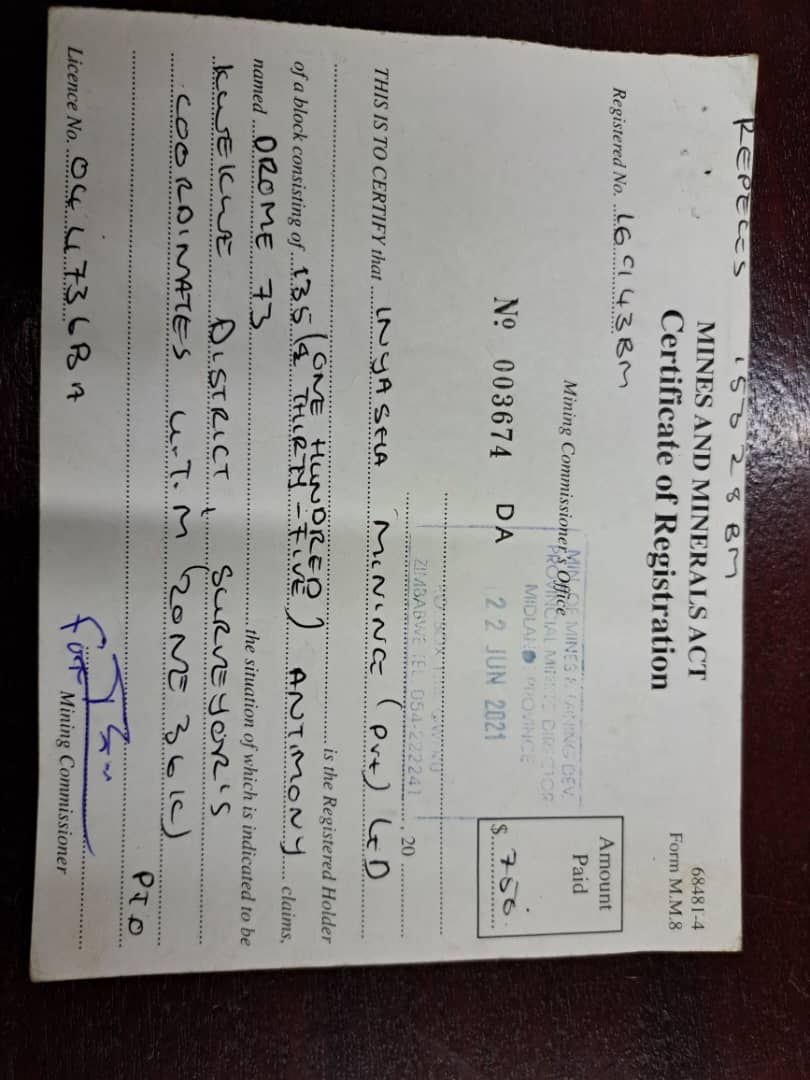 REPEGS 15328 BM
MINES AND MINERALS ACT
68481-4
Certificate of Registration
Form M.M.8
Registered No. 16943BM
Amount
Paid
$ 750
Mining Commissioner's Office
MIN OF MINES & MINING DEV.
PROVINCIAL MINING DIRECTOR
MIDLANDS PROVINCE
22 JUN 2021
No 003674 DA
ZIMBABWE TEL 054-222241
, 20
THIS IS TO CERTIFY that INYASHA MINING (PVT) LTD
is the Registered Holder
of a block consisting of 135 (ONE HUNDRED & THIRTY-FIVE) ANTIMONY claims,
named DROME 73 the situation of which is indicated to be
KWEKWE DISTRICT, SURVEYOR'S
COORDINATES U.T.M (ZONE 36K)
PTO
Licence No. 044736BA
For Mining Commissioner